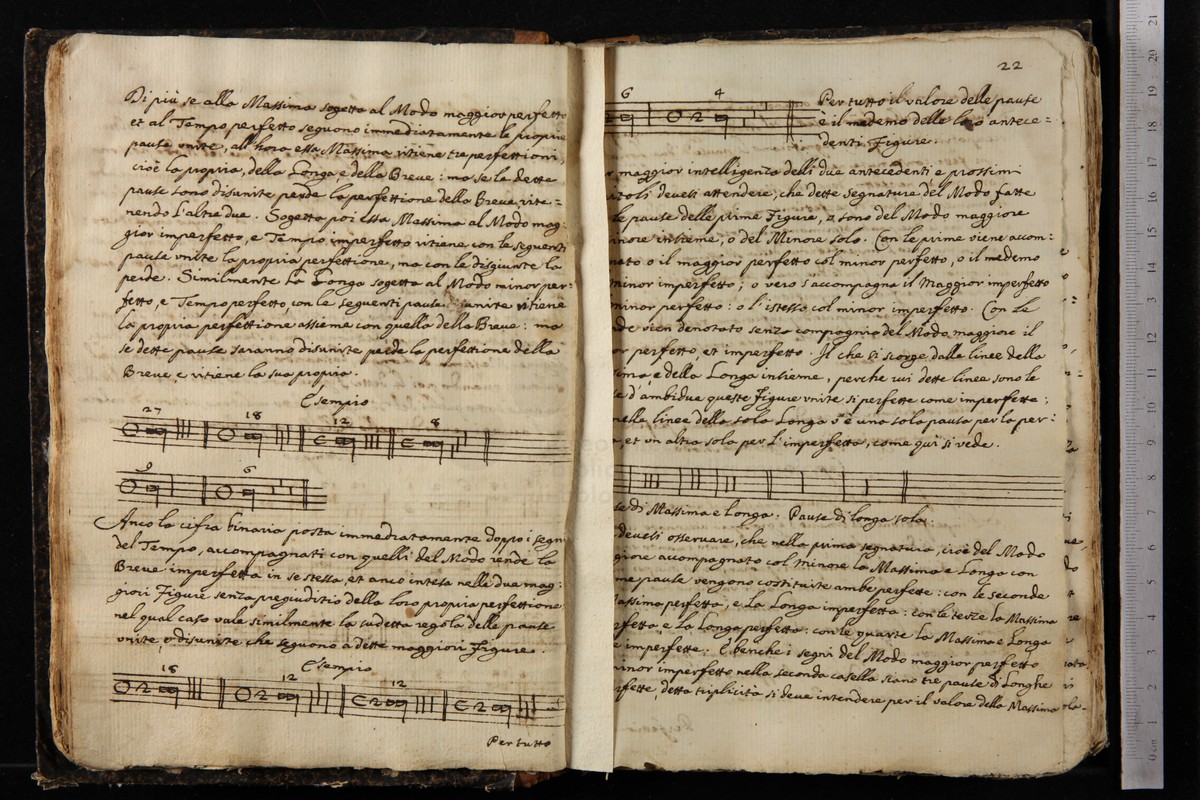 Di più se alla Massima sogetta al Modo maggior perfetto
et al Tempo perfetto seguono immediatamente le proprie
pause unite, all'hora essa Massima ritiene tre perfettioni,
cioè la propria, della Longa e della Breve: ma se le dette
pause sono disunite perde la perfettione della Breve rite=
nendo l'altre due. Sogetta poi essa Massima al Modo mag:
gior imperfetto, e Tempo imperfetto ritiene con le seguenti
pause unite la propria perfettione, ma con le disgiunte la
perde. Similmente la Longa sogetta al Modo minor per:
fetto, e Tempo perfetto, con le seguenti pause unite ritiene
la propria perfettione assieme con quella della Breve: ma
se dette pause saranno disunite perde la perfettione della
Breve, e ritiene la sua propria.
Esempio
27 18 12 8
9 6
Anco la cifra binaria posta immediatamente doppo i segni
del Tempo, accompagnati con quelli del Modo rende la
Breve imperfetta in se stessa, et anco intesa nelle due mag:
giori Figure senza pregiuditio della loro propria perfettione
nel qual caso vale similmente la sudetta regola delle pause
unite, o disunite che seguono à dette maggiori Figure.
Esempio
18 12 12
2 2 2 2
Per tutto
22
6 4
2
Per tutto il valore delle pause
e il medemo delle loro antece=
denti Figure.
maggior intelligenza delli due antecedenti e prossimi
devesi attendere, che dette segnature del Modo fatte
le pause delle prime Figure, o sono del Modo maggiore
insieme, o del Minore solo. Con le prime viene accom:
o il maggior perfetto col minor perfetto, o il medemo
minor imperfetto; o vero s'accompagna il Maggior imperfetto
minor perfetto: o l'istesso col minor imperfetto. Con le
vien denotato senza compagnia del Modo maggiore il
perfetto, et imperfetto. Il che si scorge dalle linee della
e della Longa insieme, perche ivi dette linee sono le
d'ambidue queste Figure unite si perfette come imperfette;
nella linee della sola Longa v'è una sola pausa per la per:
et un altra sola per l'imperfetta, come qui si vede.
di Massima e Longa. Pause di longa sola.
devesi osservare, che nella prima segnatura, cioè del Modo
accompagnato col minore la Massima e Longa con
pause vengono costituite ambe perfette: con le seconde
Massima perfetta, e la Longa imperfetta: con le terze la Massima
e la Longa perfetta: con le quarte la Massima e Longa
imperfette. E benche i segni del Modo maggior perfetto
minor imperfetto nella seconda casella siano tre pause di Longhe
detta triplicità si deve intendere per il valore della Massima